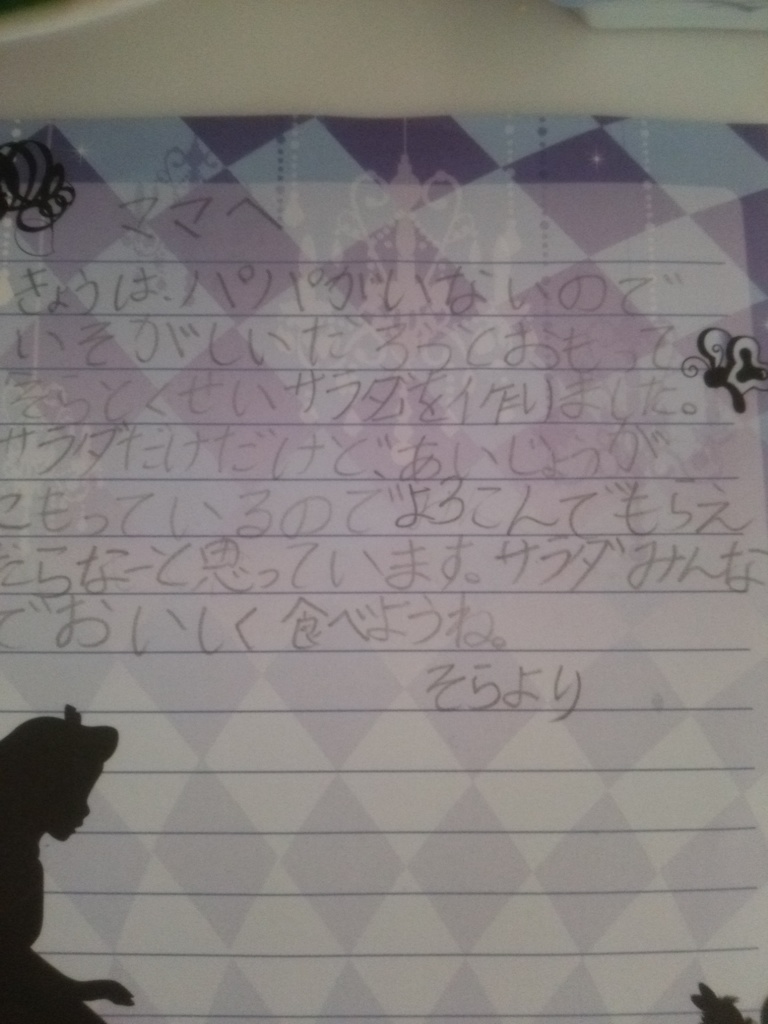 ママへ
きょうは、パパがいないので
いそがしいだろうとおもって
そらとくせいサラダを作りました。
サラダだけだけど、あいじょうが
こもっているのでよろこんでもらえ
たらなーと思っています。サラダみんな
でおいしく食べようね。
そらより